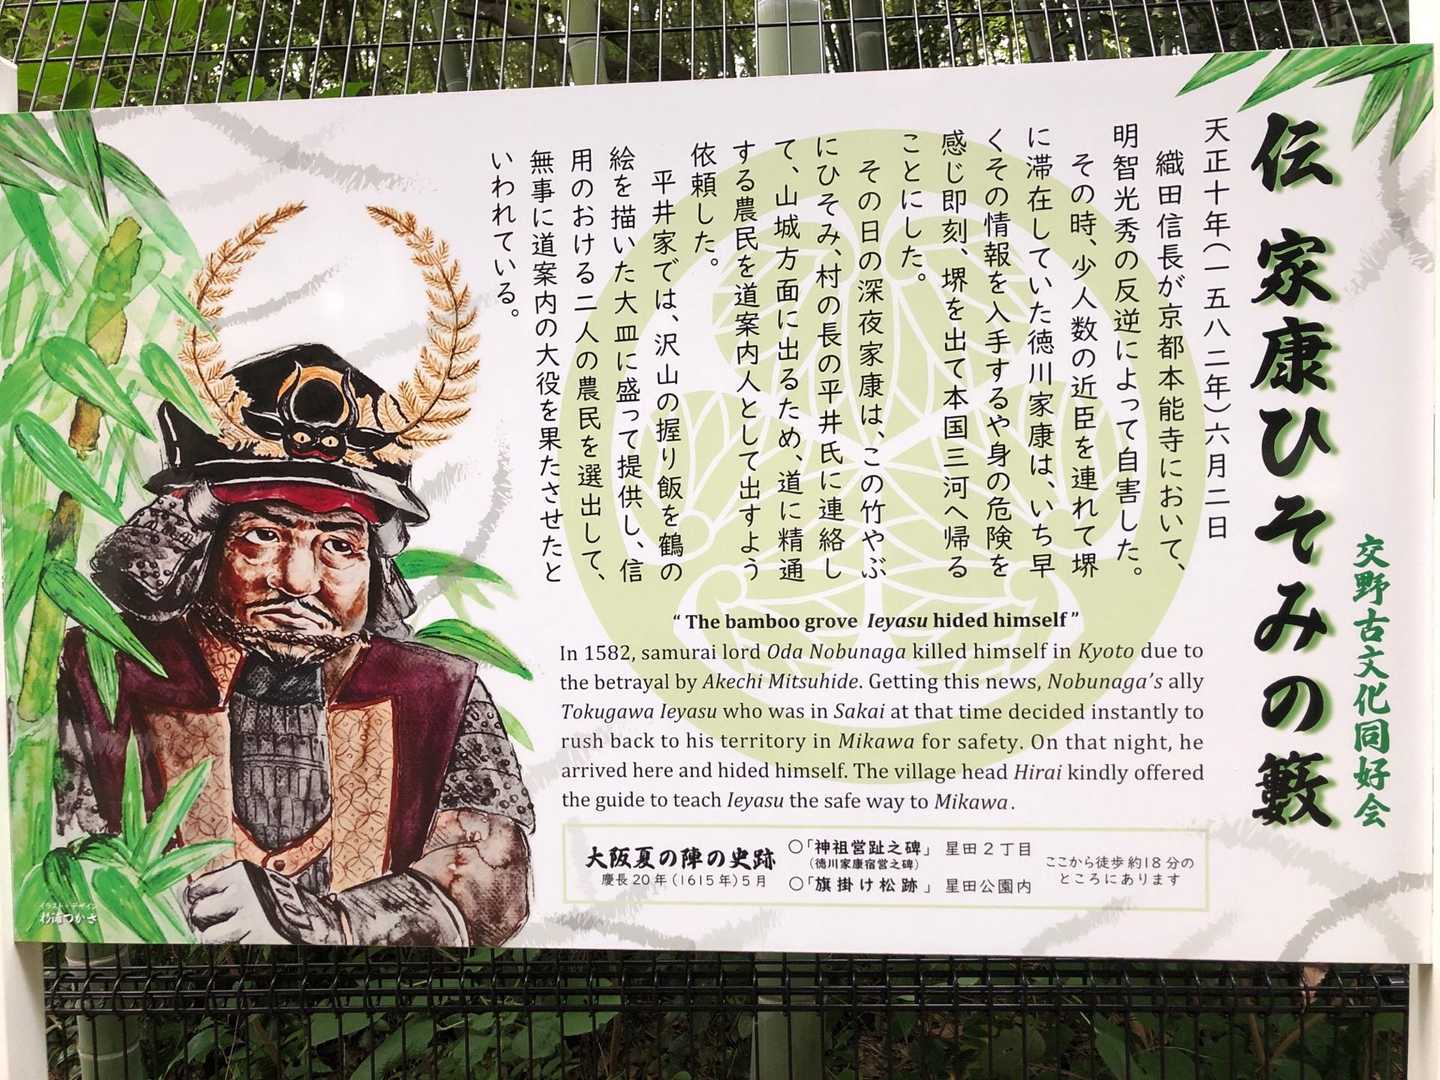 伝 家康ひそみの藪
交野古文化同好会
天正十年(一五八二年)六月二日
織田信長が京都本能寺において、
明智光秀の反逆によって自害した。
その時、少人数の近臣を連れて堺
に滞在していた徳川家康は、いち早
くその情報を入手するや身の危険を
感じ即刻、堺を出て本国三河へ帰る
ことにした。
その日の深夜家康は、この竹やぶ
にひそみ、村の長の平井氏に連絡し
て、山城方面に出るため、道に精通
する農民を道案内人として出すよう
依頼した。
平井家では、沢山の握り飯を鶴の
絵を描いた大皿に盛って提供し、信
用のおける二人の農民を選出して、
無事に道案内の大役を果たさせたと
いわれている。
“ The bamboo grove Ieyasu hided himself ”
In 1582, samurai lord Oda Nobunaga killed himself in Kyoto due to
the betrayal by Akechi Mitsuhide. Getting this news, Nobunaga's ally
Tokugawa Ieyasu who was in Sakai at that time decided instantly to
rush back to his territory in Mikawa for safety. On that night, he
arrived here and hided himself. The village head Hirai kindly offered
the guide to teach Ieyasu the safe way to Mikawa.
大阪夏の陣の史跡
慶長20年(1615年)5月
○「神祖営趾之碑」 星田2丁目
(徳川家康宿営之碑)
○「旗掛け松跡」 星田公園内
ここから徒歩約18分の
ところにあります
イラスト・デザイン
杉浦つかさ